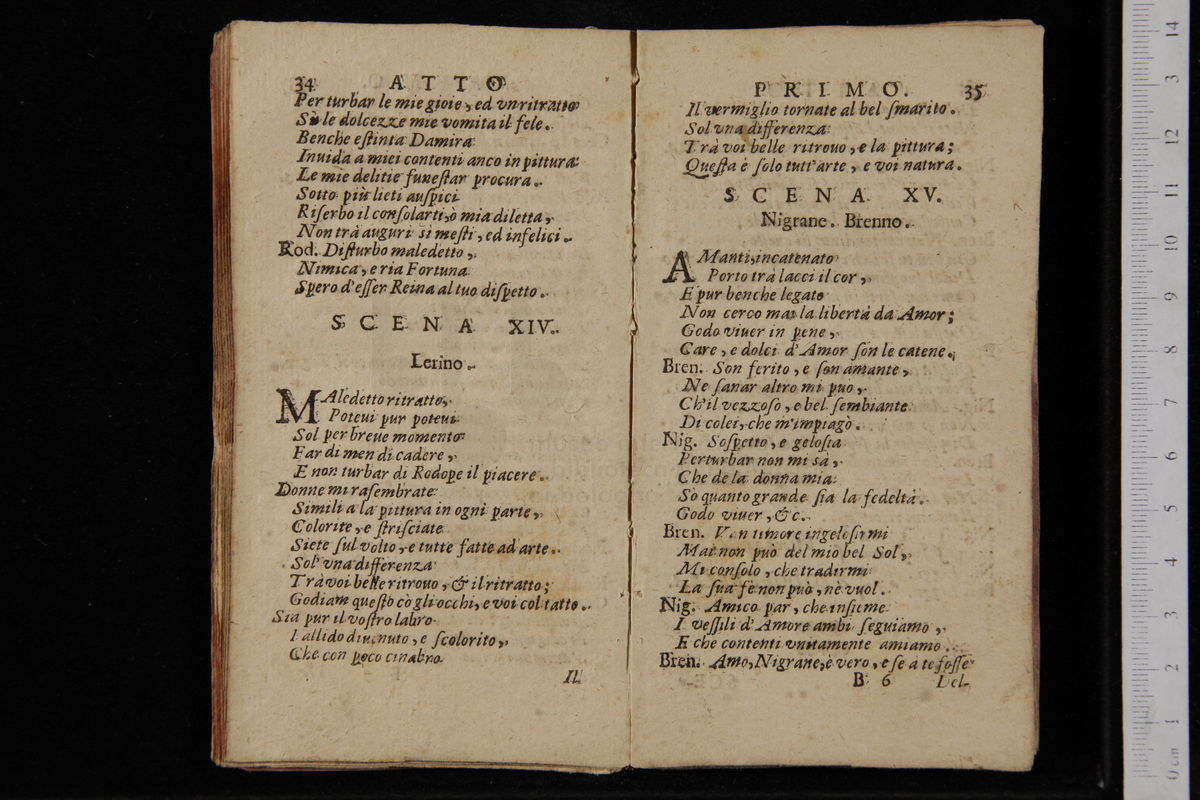 34 ATTO
Per turbar le mie gioie, ed vn ritratto
Sù le dolcezze mie vomita il fele.
Benche eſtinta Damira
Inuida a miei contenti anco in pittura
Le mie delitie funeſtar procura.
Sotto più lieti auſpici
Riſerbo il conſolarti, ò mia diletta,
Non trà auguri sì meſti, ed infelici.
Rod. Diſturbo maledetto,
Nimica, e ria Fortuna
Spero d'eſſer Reina al tuo diſpetto.
SCENA XIV.
Lerino.
MAledetto ritratto,
Poteui pur poteui
Sol per breue momento
Far di men di cadere,
E non turbar di Rodope il piacere.
Donne mi raſembrate
Simili a la pittura in ogni parte,
Colorite, e ſtriſciate
Siete ſul volto, e tutte fatte ad arte.
Sol' vna differenza
Trà voi belle ritrouo, & il ritratto;
Godiam queſto cò gli occhi, e voi col tatto.
Sia pur il voſtro labro
Pallido diuenuto, e ſcolorito,
Che con poco cinabro
Il
PRIMO. 35
Il vermiglio tornate al bel ſmarito.
Sol vna differenza
Trà voi belle ritrouo, e la pittura;
Queſta è ſolo tutt'arte, e voi natura.
SCENA XV.
Nigrane. Brenno.
AManti, incatenato
Porto trà lacci il cor,
E pur benche legato
Non cerco mai la libertà da Amor;
Godo viuer in pene,
Care, e dolci d'Amor ſon le catene.
Bren. Son ferito, e ſon amante,
Ne ſanar altro mi puo,
Ch'il vezzoſo, e bel ſembiante
Di colei, che m'impiagò.
Nig. Soſpetto, e geloſia
Perturbar non mi sà,
Che de la donna mia
Sò quanto grande ſia la fedeltà.
Godo viuer, &c.
Bren. Van timore ingeloſirmi
Mai non può del mio bel Sol,
Mi conſolo, che tradirmi
La ſua fè non può, nè vuol.
Nig. Amico par, che inſieme
I veſſili d'Amore ambi ſeguiamo,
E che contenti vnitamente amiamo.
Bren. Amo, Nigrane, è vero, e ſe a te foſſe
B 6 Del-